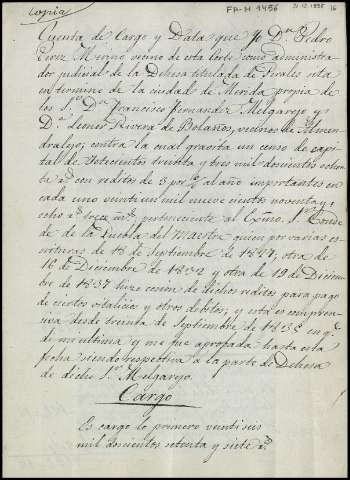 Copia
FA-M 1456
31-12-1838 16
Cuenta de Cargo y Data que Yo Dn Pedro
Perez Merino vecino de esta Corte como administra-
dor judicial de la Dehesa titulada de Perales sita
en termino de la ciudad de Merida propia de
los Sres Dn Francisco Fernandez Melgarejo y
Da Leonor Rivera de Bolaños, vecinos de Almen-
dralejo; contra la cual gravita un censo de capi-
tal de setecientos treinta y tres mil doscientos
rs con reditos de 3 por % al año importantes en
cada uno veinti un mil nueve cientos noventa y
ocho rs trece ms, perteneciente al Exmo. Sr Conde
de la Puebla del Maestre quien por varias es-
crituras de 18 de Septiembre de otra de
16 de Diciembre de y otra de 19 de Diciem-
bre de 1837 hizo cesion de dichos reditos para pago
de ciertos vitalicios y otros debitos; y esta es compren-
siva desde treinta de Septiembre de 1835 en qe
di mi ultima y me fue aprobada hasta esta
fecha siendo respectiva a la parte de Dehesa
de dicho Sr Melgarejo.
Cargo
Es cargo lo primero veinti seis
mil doscientos setenta y siete rs